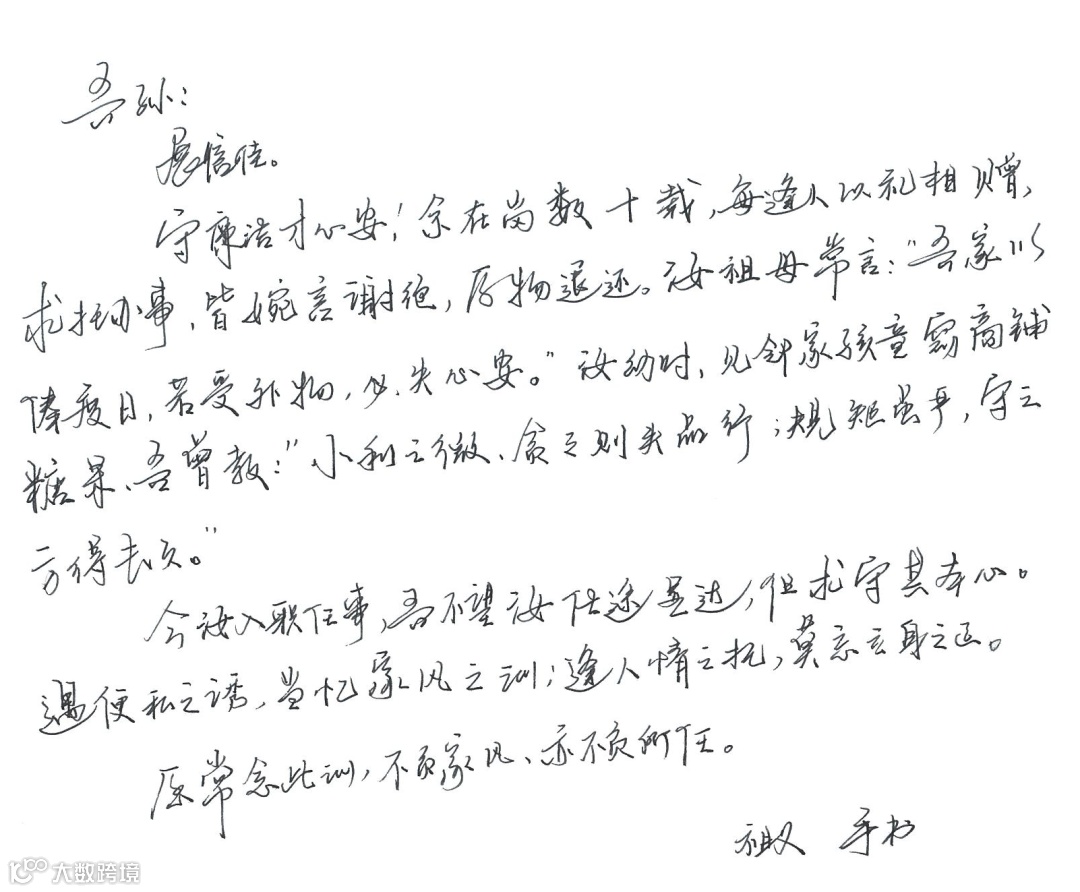 吾孙：
见信佳。
守廉洁才心安！余在岗数十载，每逢人以礼相赠，
求托办事，皆婉言谢绝，原物退还。汝祖母常言："吾家以
俸度日，若受外物，必失心安。"汝幼时，见邻家孩童窃商铺
糖果、吾曾教："小利之微、贪之则失品行；规矩虽严，守之
方得长久。"
今汝入职任事，吾不望汝仕途显达，但求守其本心。
遇便私之诱，当忆家风之训；逢人情之扰，莫忘立身之正。
愿常念此训，不负家风、亦不负所任。
祖父 手书
大数跨境